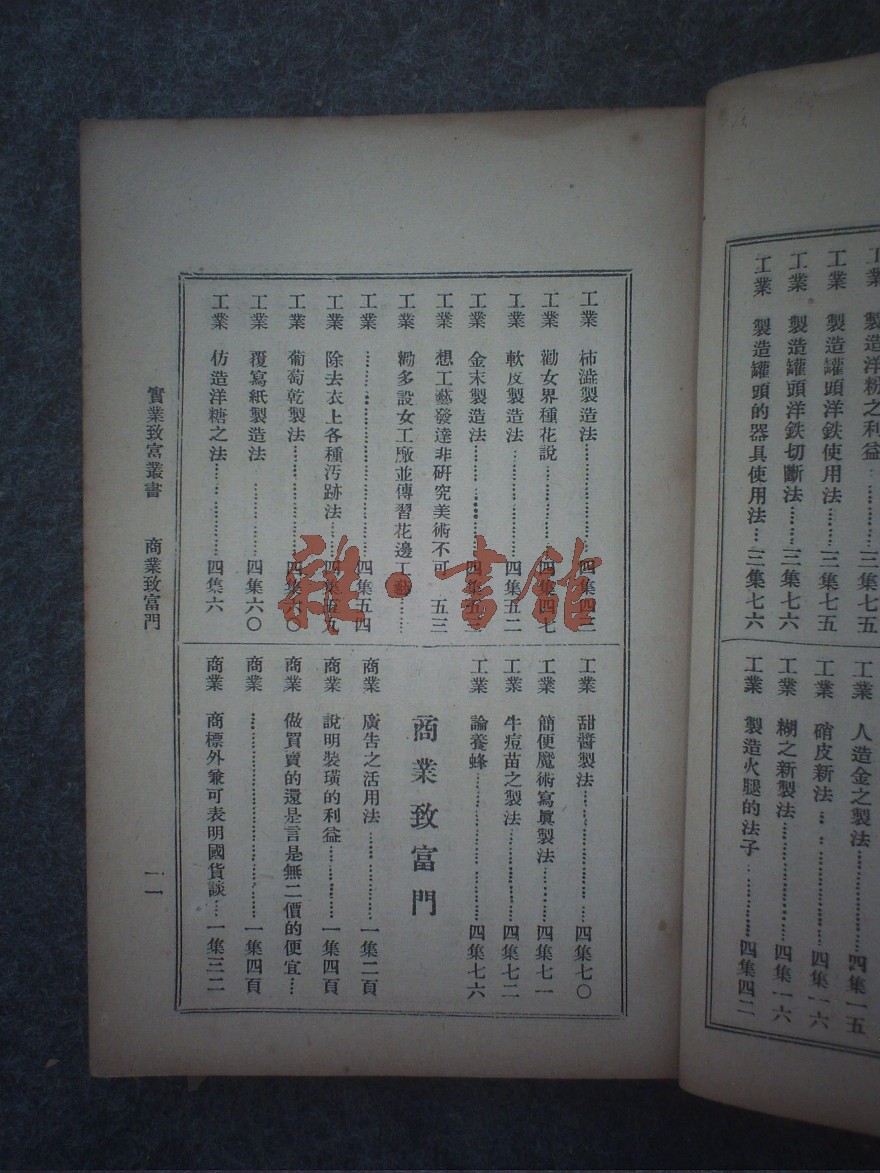 工業 製造洋粉之利益……三集七五
工業 製造罐頭洋鉄使用法……三集七五
工業 製造罐頭洋鉄切斷法……三集七六
工業 製造罐頭的器具使用法…三集七六
工業 人造金之製法……四集一五
工業 硝皮新法……四集一六
工業 糊之新製法……四集一六
工業 製造火腿的法子……四集四二
工業 柿澁製造法……四集四三
工業 勸女界種花說……四集四七
工業 軟皮製造法……四集五二
工業 金末製造法……四集五三
工業 想工藝發達非研究美術不可 五三
工業 勸多設女工厰並傳習花邊工藝……
工業 ……四集五四
工業 除去衣上各種汚跡法……四集五九
工業 葡萄乾製法……四集六〇
工業 覆寫紙製造法……四集六〇
工業 仿造洋糖之法……四集六
工業 甜醬製法……四集七〇
工業 簡便魔術寫眞製法……四集七一
工業 牛痘苗之製法……四集七二
工業 論養蜂……四集七六
商業致富門
商業 廣告之活用法……一集二頁
商業 說明裝璜的利益……一集四頁
商業 做買賣的還是言是無二價的便宜…
商業 ……一集四頁
商業 商標外兼可表明國貨談…一集三二
實業致富叢書 商業致富門
一一
雜·書館